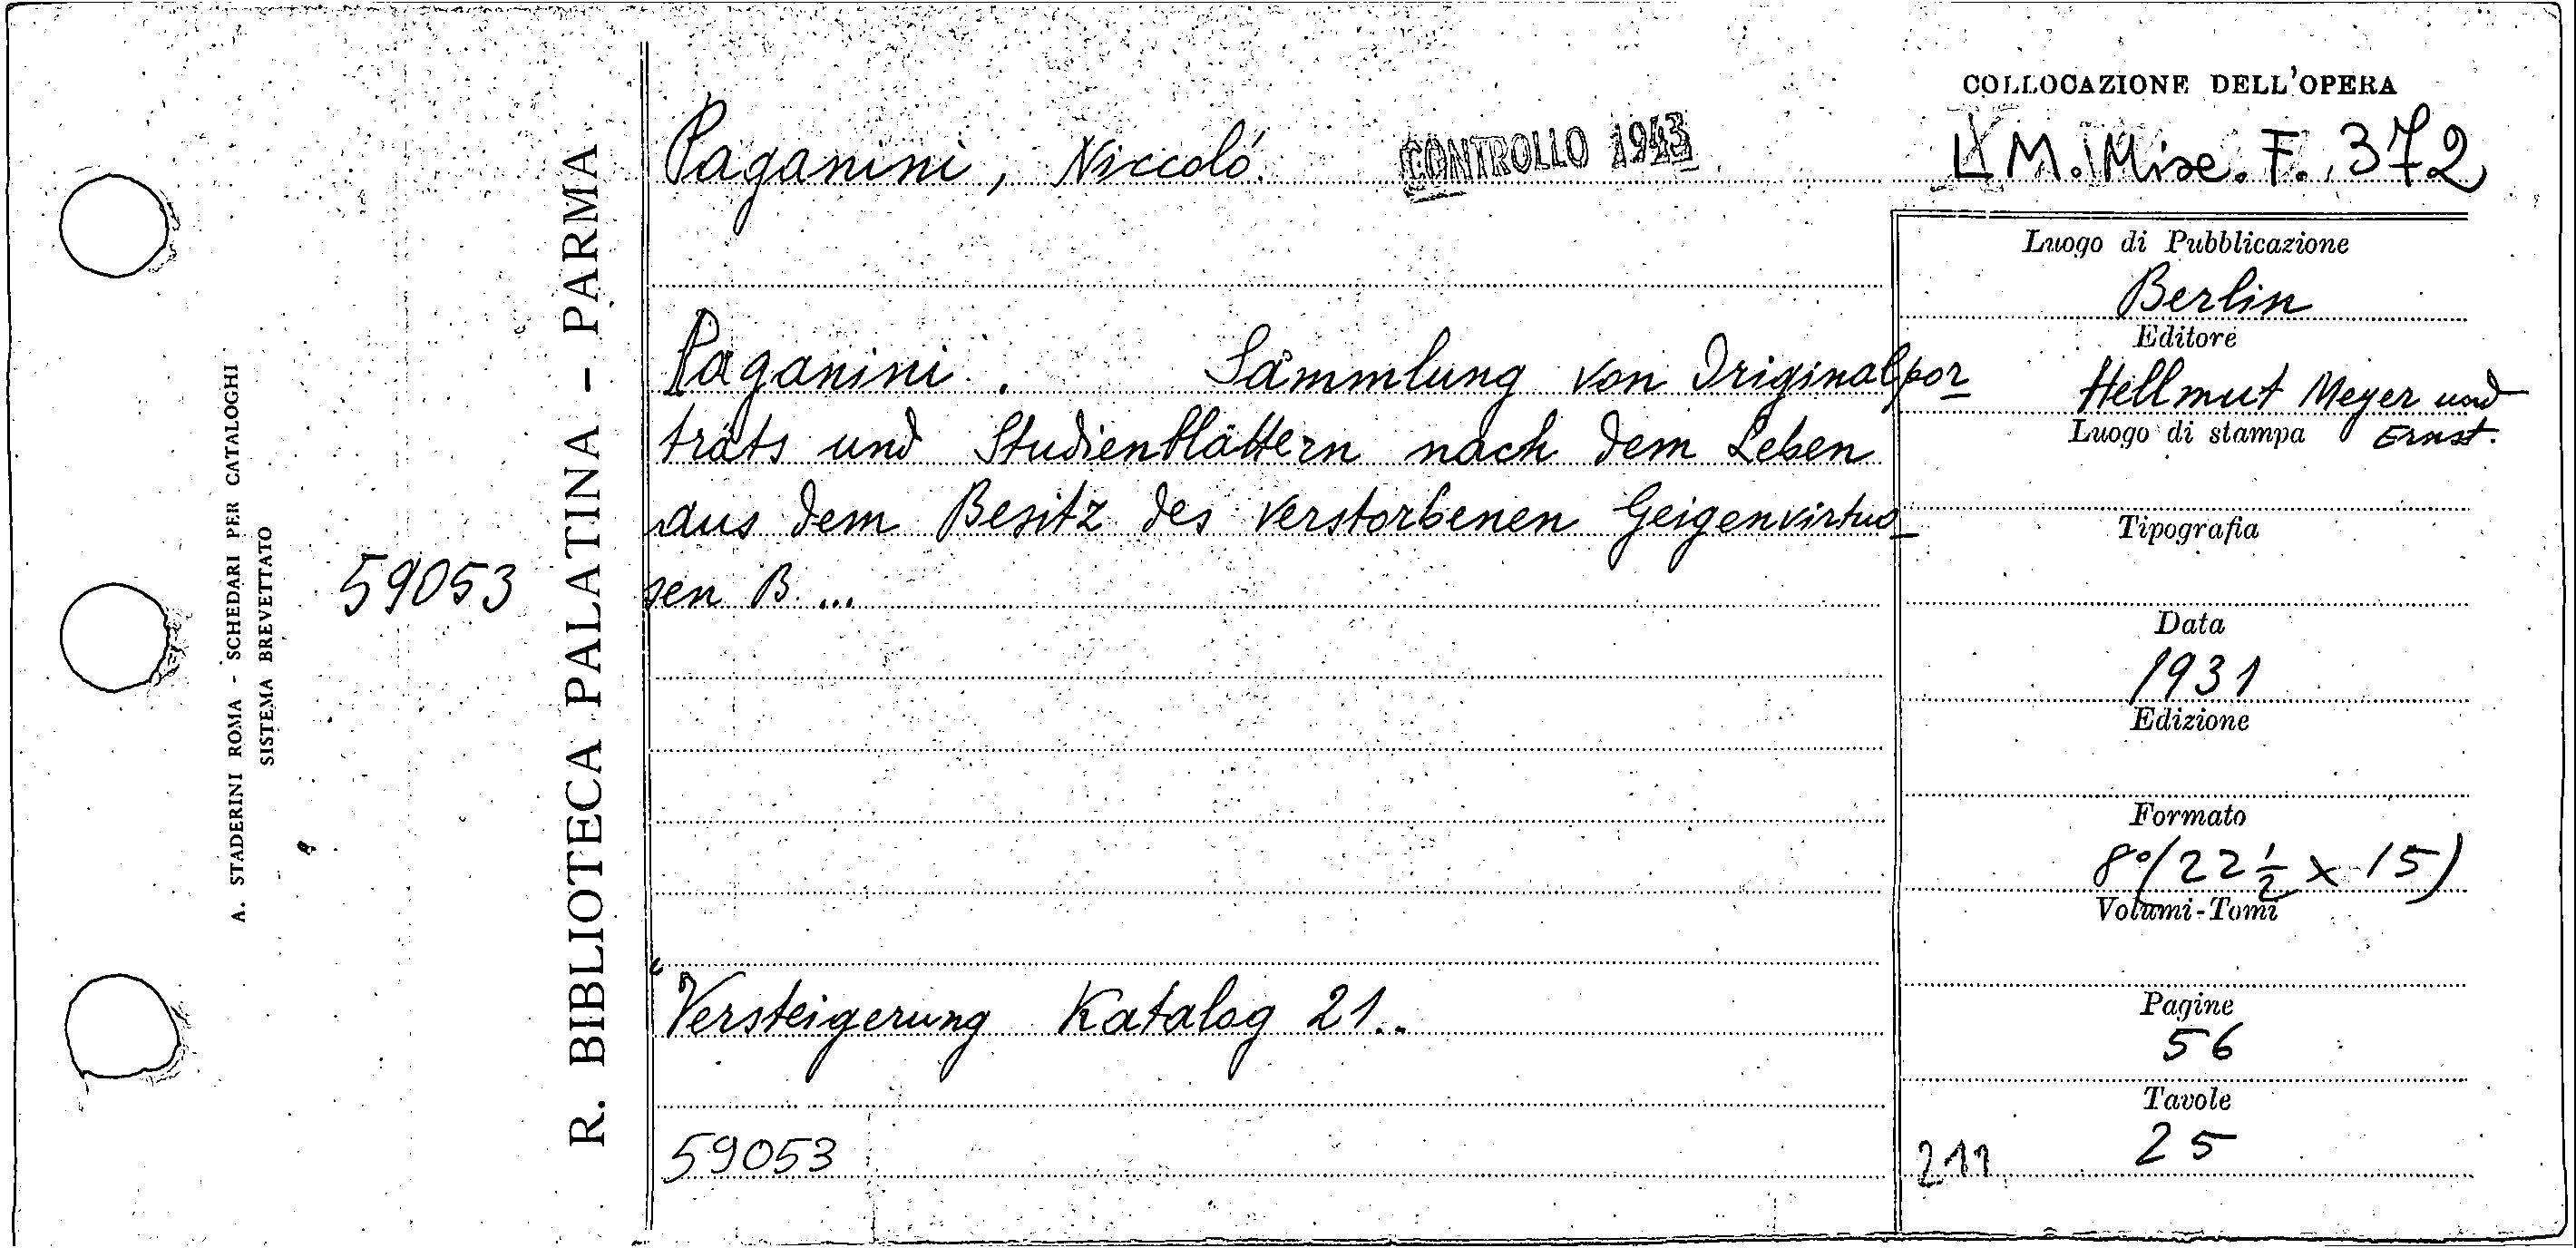 COLLOCAZIONE DELL'OPERA
Paganini, Niccolò. CONTROLLO 1943 M. Misc. F. 372
Luogo di Pubblicazione
Berlin
Editore
Hellmut Meyer und
Ernst.
Luogo di stampa
Tipografia
Data
1931
Edizione
Formato
8°(22 1/2 x 15)
Volumi-Tomi
Pagine
56
Tavole
25
211
Paganini. Sammlung von Originalpor
träts und Studienblättern nach dem Leben
aus dem Besitz des verstorbenen Geigenvirtuo
sen B ...
Versteigerung Katalog 21..
59053
R. BIBLIOTECA PALATINA - PARMA
59053
A. STADERINI ROMA - SCHEDARI PER CATALOGHI
SISTEMA BREVETTATO